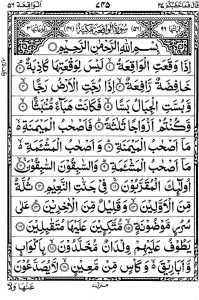 قال فما خطبکم ٢٧ ٧٣٥ الواقعة ٥٦
بِسْمِ اللّٰهِ الرَّحْمٰنِ الرَّحِيْمِ
اِذَا وَقَعَتِ الْوَاقِعَةُ ۙ لَيْسَ لِوَقْعَتِهَا كَاذِبَةٌ ۘ
خَافِضَةٌ رَّافِعَةٌ ۙ اِذَا رُجَّتِ الْاَرْضُ رَجًّا ۙ
وَّبُسَّتِ الْجِبَالُ بَسًّا ۙ فَكَانَتْ هَبَآءً مُّنْۢبَثًّا ۙ
وَّكُنْتُمْ اَزْوَاجًا ثَلٰثَةً ؕ فَاَصْحٰبُ الْمَيْمَنَةِ
مَاۤ اَصْحٰبُ الْمَيْمَنَةِ ؕ وَاَصْحٰبُ الْمَشْـَٔمَةِ
مَاۤ اَصْحٰبُ الْمَشْـَٔمَةِ ؕ وَالسّٰبِقُوْنَ السّٰبِقُوْنَ ۙ
اُولٰٓئِكَ الْمُقَرَّبُوْنَ ۚ فِيْ جَنّٰتِ النَّعِيْمِ ثُلَّةٌ
مِّنَ الْاَوَّلِيْنَ ۙ وَقَلِيْلٌ مِّنَ الْاٰخِرِيْنَ ؕ عَلٰى
سُرُرٍ مَّوْضُوْنَةٍ ۙ مُّتَّكِـِٕيْنَ عَلَيْهَا مُتَقٰبِلِيْنَ
يَطُوْفُ عَلَيْهِمْ وِلْدَانٌ مُّخَلَّدُوْنَ ۙ بِاَكْوَابٍ
وَّاَبَارِيْقَ ۙ وَكَاْسٍ مِّنْ مَّعِيْنٍ ۙ لَّا يُصَدَّعُوْنَ
عَنْهَا وَلَا